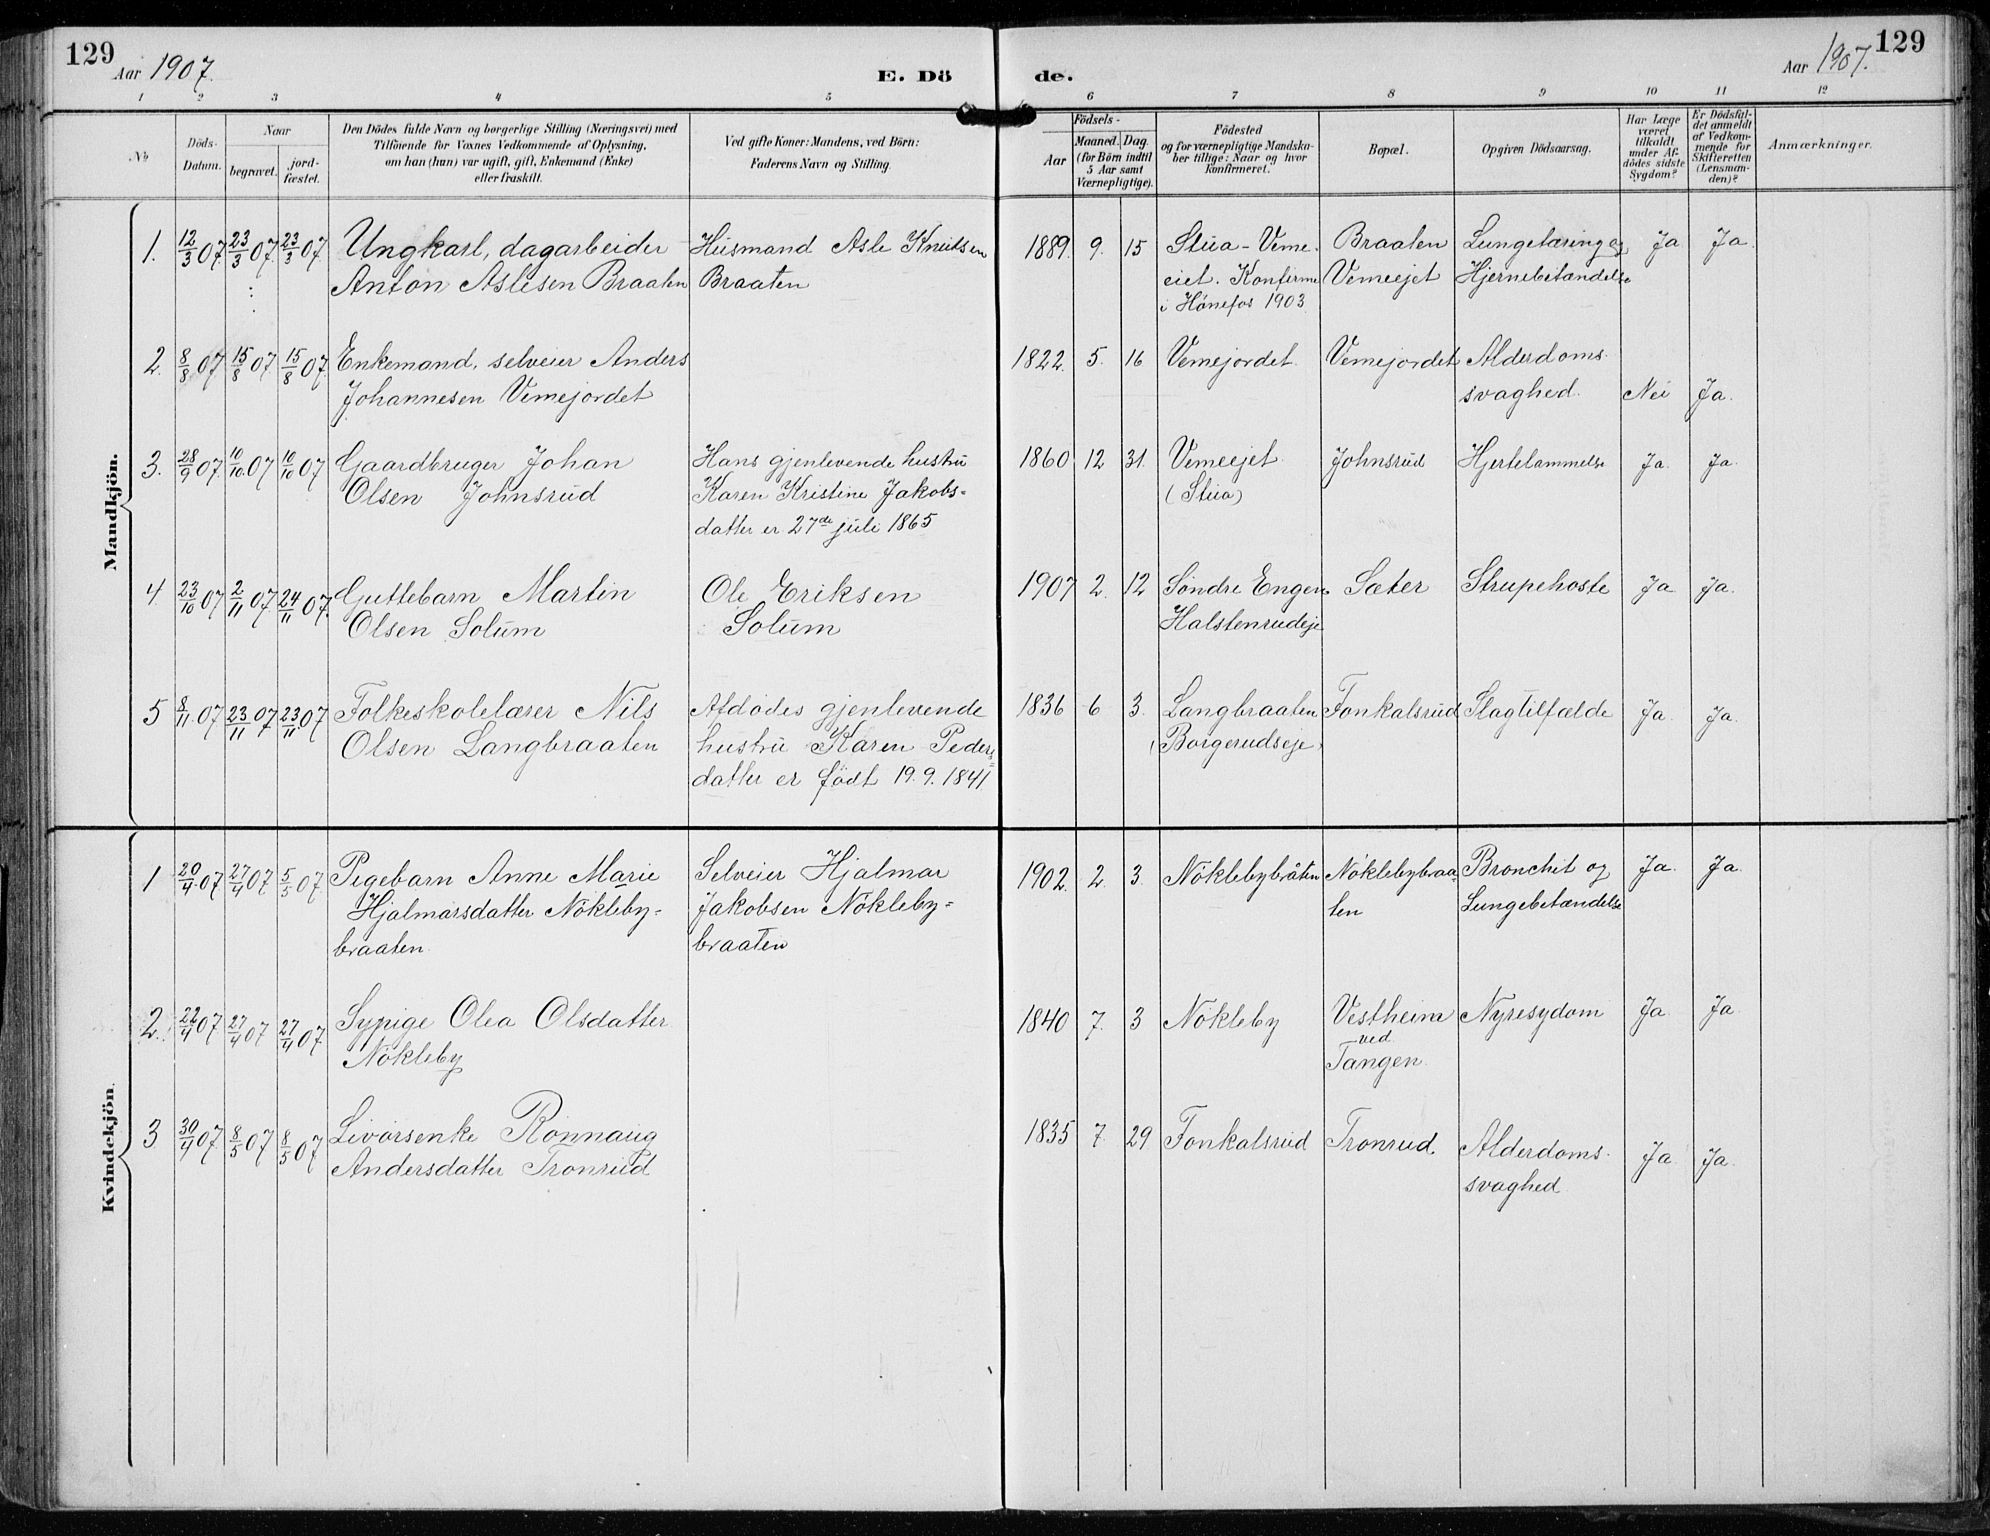 129
Aar 1907.
E. Dö
de.
Aar 1907.
129
1 2 3 4 5 6 7 8 9 10 11 12
No
Döds-
Datum.
Naar
begravet.
jord-
fæstet.
Den Dödes fulde Navn og borgerlige Stilling (Næringsvei) med
Tilföiende for Voxnes Vedkommende af Oplysning,
om han (hun) var ugift, gift, Enkemand (Enke)
eller fraskilt.
Ved gifte Koner: Mandens, ved Börn:
Faderens Navn og Stilling.
Födsels-
Aar
Maaned. Dag.
(for Börn indtil
5 Aar samt
Værnepligtige).
Födested
og for værnepligtige Mandska-
ber tillige: Naar og hvor
konfirmeret.
Bopæl.
Opgiven Dödsaarsag.
Har Læge
været
tilkaldt
under Af-
dödes sidste
Sygdom?
Er Dödsfal-
det anmeldt
af Vedkom-
mende for
Skifteretten
(Lensman-
den)?
Anmærkninger.
Mandkjön.
1. 12/3 07 23/3 07. 23/3 07. Ungkarl, dagarbeider Husmand Asle Knutsen 1889. 9. 15 Stua - Veme- Braaten Lungetæring og Ja Ja.
Anton Aslesen Braaten Braaten eiet. Konfirme Vemeejet Hjernebetændelse
i Hönefos 1903.
2. 8/8 07. 15/8 07. 15/8 07. Enkemand, selveier Anders 1822. 5. 16 Vemejordet. Vemejordet Alderdoms-
Johannesen Vemejordet svaghed. Nei Ja.
3. 28/9 07. 10/10 07 10/10 07 Gaardbruger Johan Hans gjenlevende hustru 1860 12 31. Vemeejet Johnsrud Hjertelammelse Ja. Ja.
Olsen Johnsrud Karen Kristine Jakobs- (Stua)
datter er 27de juli 1865
4. 23/10 07 2/11 07 24/11 07. Guttebarn Martin Ole Eriksen 1907 2. 12 Söndre Engen Sæter Strupehoste Ja Ja.
Olsen Solum Solum Halstenrudeje
5 8/11 07 23/11 07 23/11 07 Folkeskolelærer Nils Afdödes gjenlevende 1836 6 3. Langbraaten Fonkalsrud Slagtilfælde Ja. Ja.
Olsen Langbraaten hustru Karen Peders- (Borgerudseje)
datter er födt 19.9.1841
Kvindekjön.
1 20/4 07 27/4 07 5/5 07 Pigebarn Anne Marie Selveier Hjalmar 1902. 2. 3. Nöklebybråten Nöklebybraa- Bronchit og Ja. Ja.
Hjalmarsdatter Nökleby- Jakobsen Nökleby- ten Lungebetændelse
braaten. braaten
2. 22/4 07 27/4 07 27/4 07 Sypige Olea Olsdatter 1840 7. 3 Nökleby Vestheim Nyresydom Ja Ja
Nökleby ved
Tangen.
3 30/4 07. 8/5 07 8/5 07 Livörsenke Rönnaug 1835 7. 29 Fonkalsrud Tronrud. Alderdoms- Ja Ja.
Andersdatter Tronrud svaghed